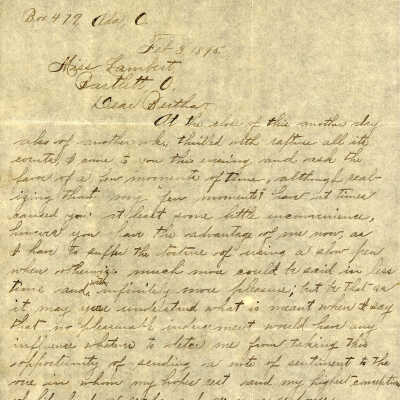 Box 477, Ada, O.
Feb 3, 1895
Miss Lambert,
Bartlett O.
Dear Bertha:
At the close of this another day
also of another week thrilled with rapture all its
events, I come to you this evening and ask the
favor of a few moments of time, although real-
izing that my "few moments" have at times
caused you at least some little inconvenience,
however you have the advantage of me now, as
I have to suffer the torture of using a slow pen
when otherwise much more could be said in less
time and with infinitely more pleasure; but be that as
it may you understand what is meant when I say
that no pleasurable inducement would have any
influence whatever to deter me from taking this
opportunity of sending a note of sentiment to the
one in whom my hopes rest and my highest conception